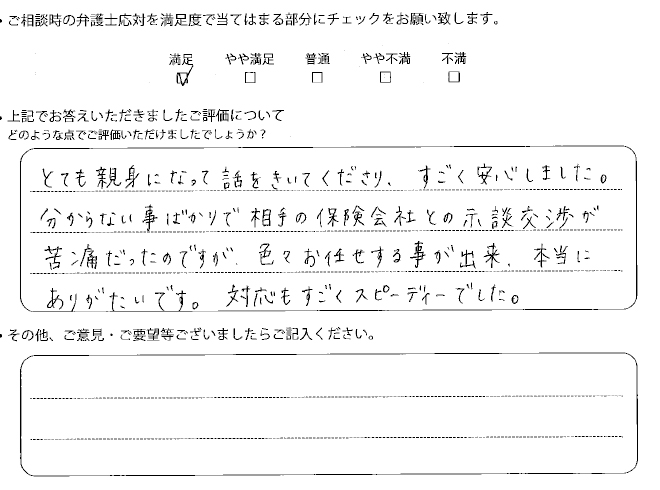 ・ご相談時の弁護士応対を満足度で当てはまる部分にチェックをお願い致します。
満足 やや満足 普通 やや不満 不満
・上記でお答えいただきましたご評価について
どのような点でご評価いただけましたでしょうか？
とても親身になって話をきいてくださり、すごく安心しました。
分からない事ばかりで相手の保険会社との示談交渉が
苦痛だったのですが、色々お任せする事が出来、本当に
ありがたいです。対応もすごくスピーディーでした。
・その他、ご意見・ご要望等ございましたらご記入ください。